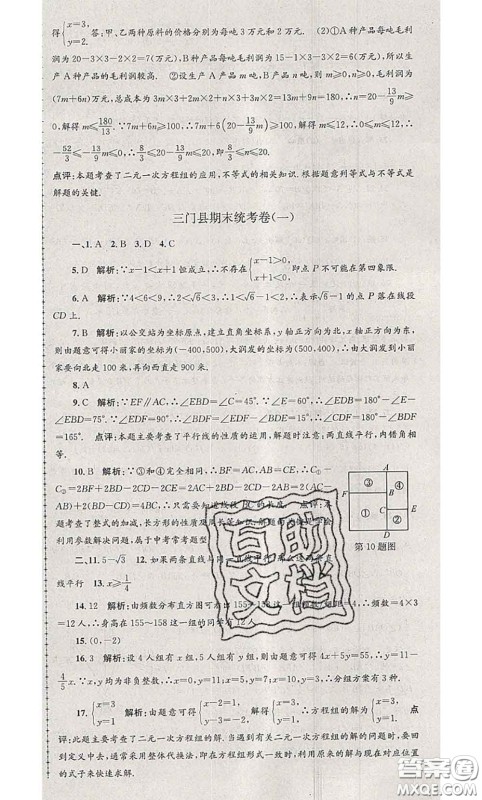 得{x=3, y=2. 答:甲、乙两种原料的价格分别为每吨3万元和2万元. (2)①A种产品每吨毛利
润为20-3×3-2×2=7(万元),B种产品每吨毛利润为15-1×3-3×2=6(万元),所以生
产A种产品的毛利润较高. ②设生产A种产品m吨,B种产品n吨,则m≥0,n≥0,毛利润为
(7m+6n)万元,总成本为3m×3+2m×2+n×3+2×3n=13m+9n=180,∴n=20-13/9m≥
0,解得m≤180/13. ∵7m+6n≥100,∴7m+6×(20-13/9m)≥100,解得m≤12,
-52/3≤-13/9m≤0,∴8/3≤20-13/9m≤20,∴8/3≤n≤20.
点评:本题考查了二元一次方程组的应用,不等式的相关知识.根据题意列等式与不等式是
解题的关键.
三门县期末统考卷(一)
一、1. A 2. B 3. D 4. C
5. D 解析:∵x-1<x+1恒成立,∴不存在{x-1>0, x+1<0,∴点P不可能在第四象限.
6. A 解析:∵4<6<9,∴2<√6<3,∴1<√6-1<2,∴表示√6-1的点P落在线段
CD上.
7. B 解析:以公交站为坐标原点,建立直角坐标系,y轴正方向为北,x轴正方向为东,
则由题意可得小丽家的坐标为(-400,500),大润发的坐标为(500,400),∴由大润发到小丽
家要向北走100米,再向西直走900米.
8. A
9. C 解析:∵EF∥AC,∴∠BDE=∠C=45°. ∵∠EBD=60°,∴∠BED=180°-
∠EBD-∠BDE=75°. ∵∠EDF=90°,∴∠BDF=∠BDE+∠EDF=135°,∴∠BDF
=165°. 点评:本题主要考查了平行线的性质的运用,解题时注意:两直线平行,内错角相
等.
10. B 解析:∵③和④完全相同,∴BF=AC,AB=CE,∴C①-
C②=2BF+2BD-2CD-2CE=2AC+2BD-2CD-2AB=2BC+
2BC=4BC,∴只要知道线段BC的长度. 点评:本
题考查了整式的加减,长方形的性质及周长等知识.
利用参数解决问题,属于中考常考题型.
第10题图
二、11. 5-√3 12. 如果两条直线与同一直线平行,那么这两条
直线平行 13. x≥1/4
14. 12 解析:由频数分布直方图可
12人,∴身高在155~158这一组的同学有12人.
15. (0,-2)
16. 3 解析:设4人组有x组,5人组有y组,则由题意可得4x+5y=55,∴y=11-
4/5x. ∵x,y均为非负整数,∴x=0,y=11;x=5,y=7;x=10,y=3. ∴分组方案有3种.
17. {x=3, y=1 解析:由题意可得{x-2=1, y-1=0,解得{x=3, y=1,∴方程组的解为{x=3, y=1. 点
评:此题主要考查了二元一次方程组的解.当遇到有关二元一次方程组的解的问题时,要回
到定义中去,通常采用整体代换法,即在方程组形式一致时,利用原来的解与现在对应位置
的式子来快速求解.
互助文档
答案圈
MXQE.COM